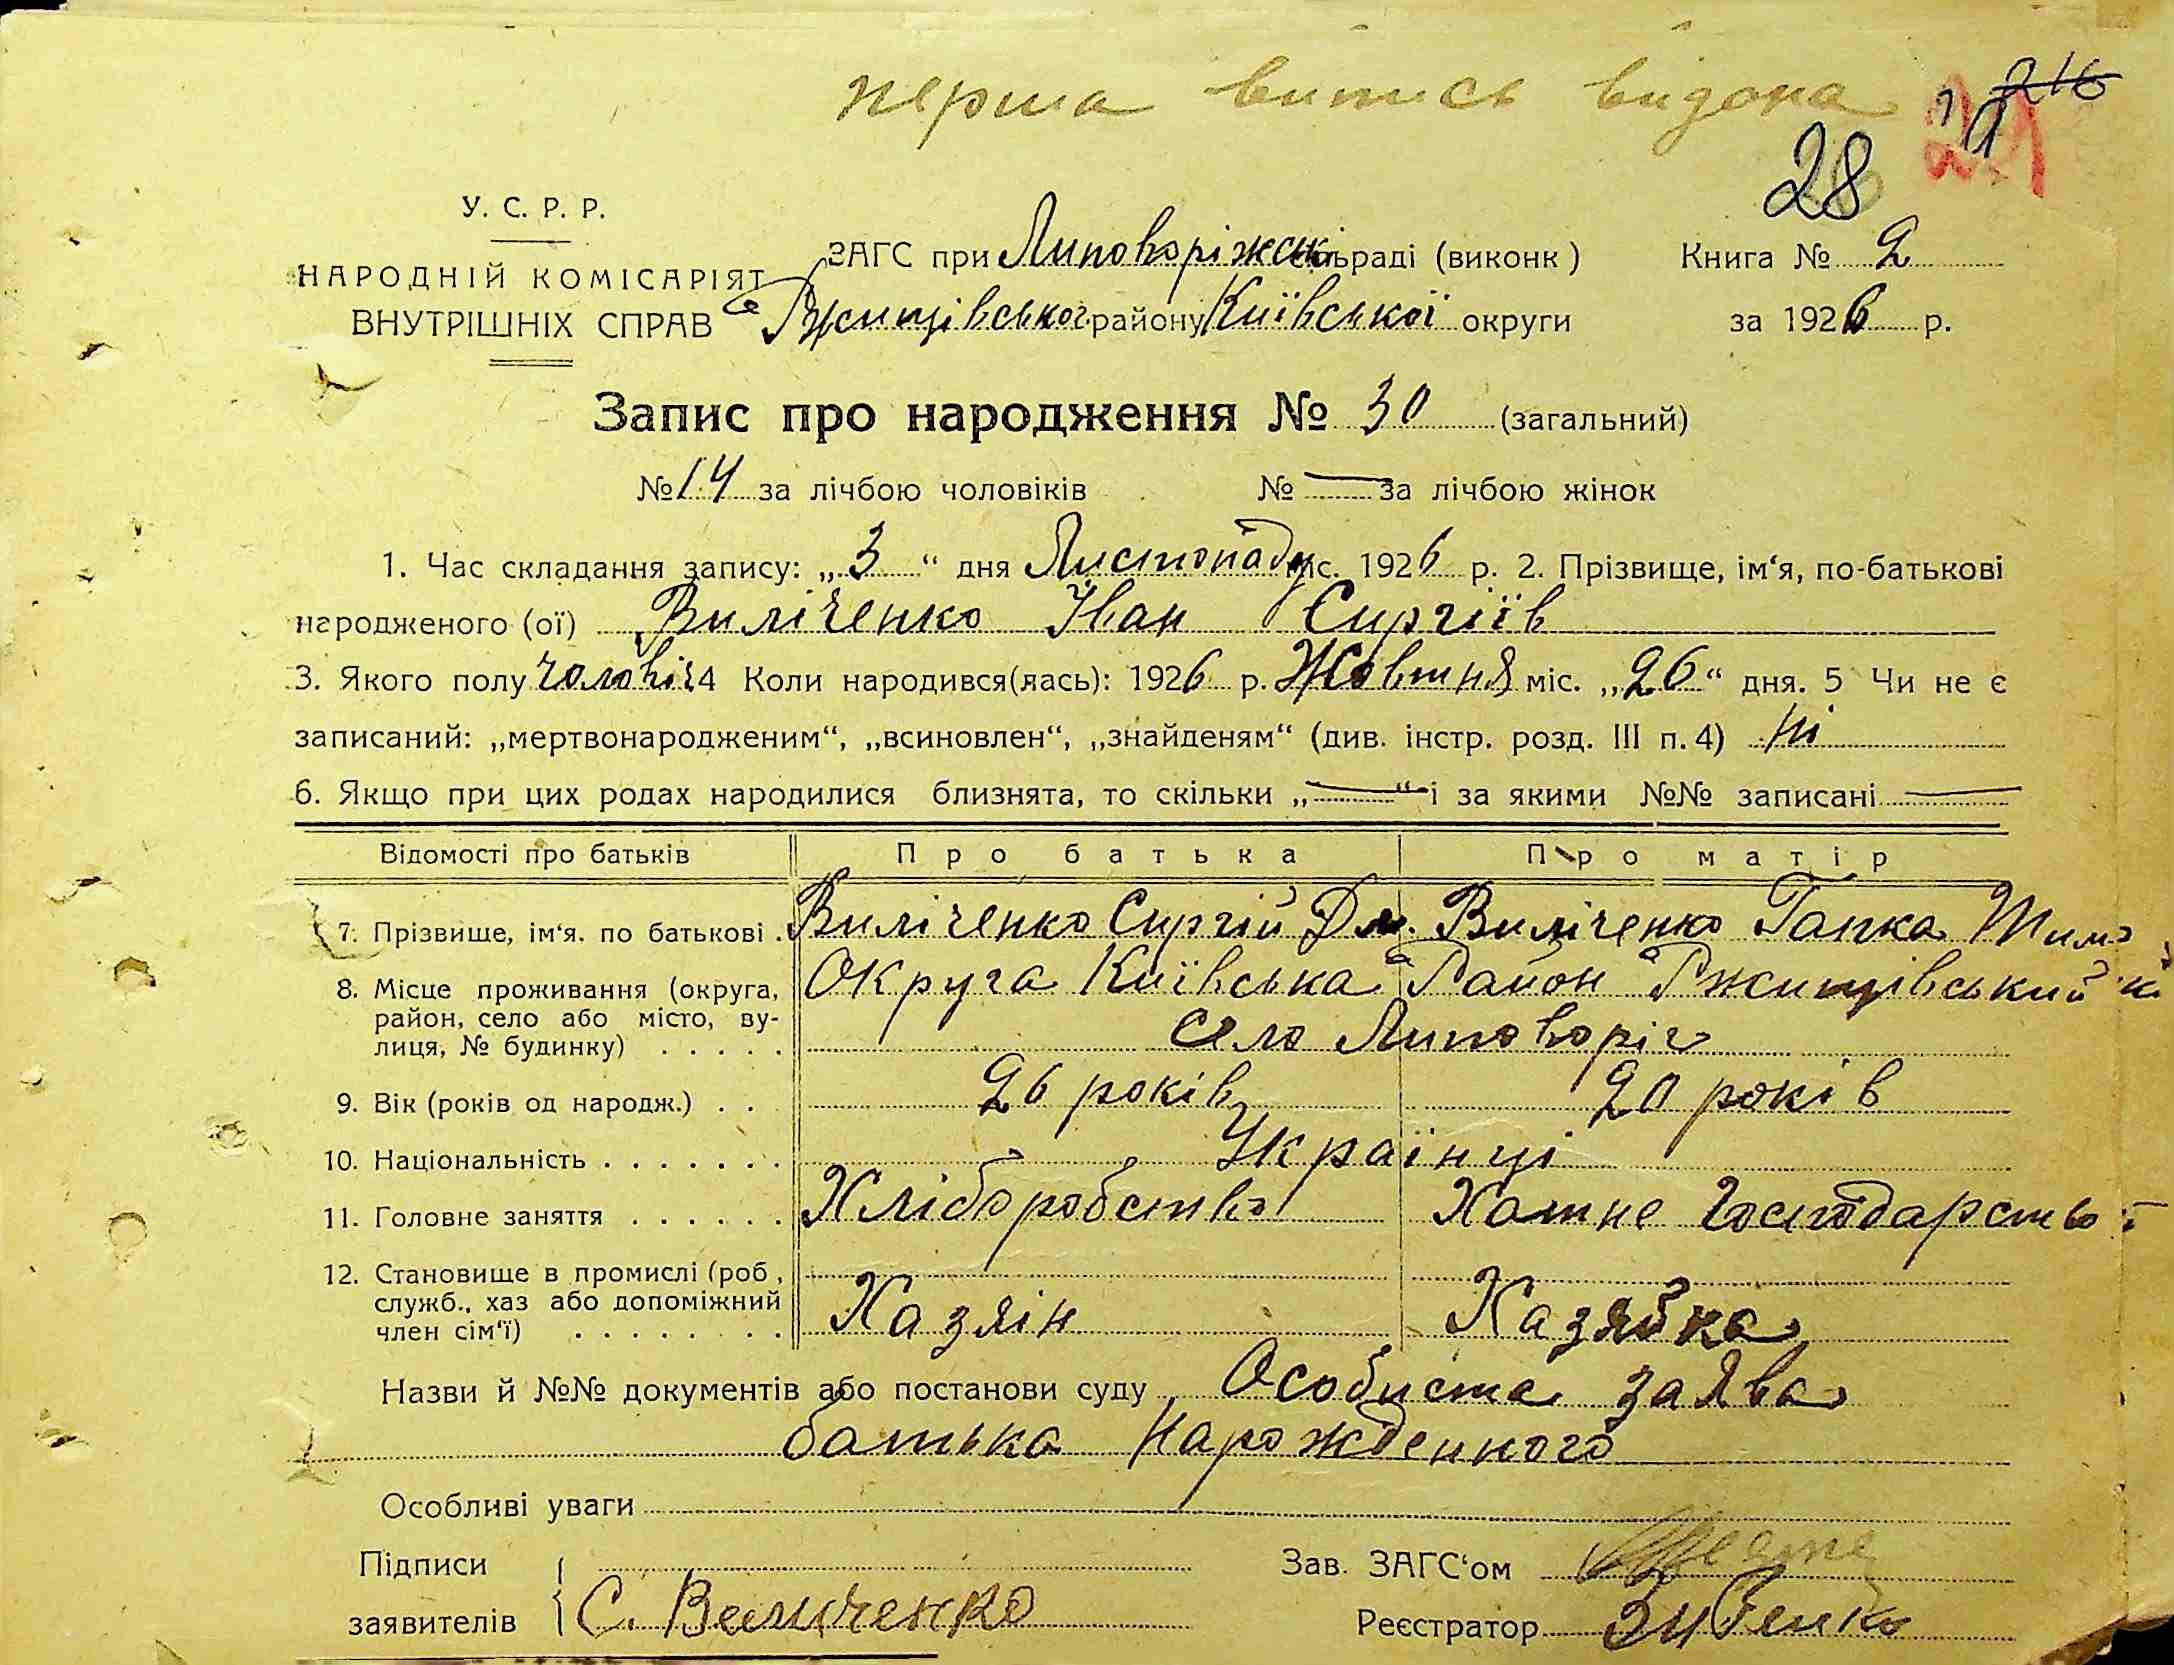 перша випись видона
216
21
28
У. С. Р. Р.
НАРОДНІЙ КОМІСАРІЯТ
ВНУТРІШНІХ СПРАВ
ЗАГС при Липоворіжські сільраді (виконк)
Книга № 2
Ржищівськог. району Київської округи
за 1926 р.
Запис про народження № 30 (загальний)
№ 14 за лічбою чоловіків № — за лічбою жінок
1. Час складання запису: „3“ дня Листопаду міс. 1926 р. 2. Прізвище, ім‘я, по-батькові
народженого (ої) Виліченко Іван Сиргіїв
3. Якого полу чоловіч 4 Коли народився(лась): 1926 р. Жовтня міс. „26“ дня. 5 Чи не є
записаний: „мертвонародженим“, „всиновлен“, „знайденям“ (див. інстр. розд. III п. 4) ні
6. Якщо при цих родах народилися близнята, то скільки „—“ і за якими №№ записані —
Відомості про батьків Про батька Про матір
7. Прізвище, ім‘я. по батькові . Виліченко Сиргій Дм. Виліченко Гапка Тимо
8. Місце проживання (округа, Округа Київська Район Ржищівський
район, село або місто, ву-
лиця, № будинку) . . . . . село Липоворіг
9. Вік (років од народж.) . . 26 років 20 років
10. Національність . . . . . . . Українці
11. Головне заняття . . . . . . Хліборобство Хатне Господарство
12. Становище в промислі (роб,
служб., хаз або допоміжний
член сім‘ї) . . . . . . . . Хазяїн Хазяйка
Назви й №№ документів або постанови суду Особиста заява
батька нарожденного
Особливі уваги
Підписи
заявителів С. Величенко
Зав. ЗАГС‘ом
Реєстратор Зибенко